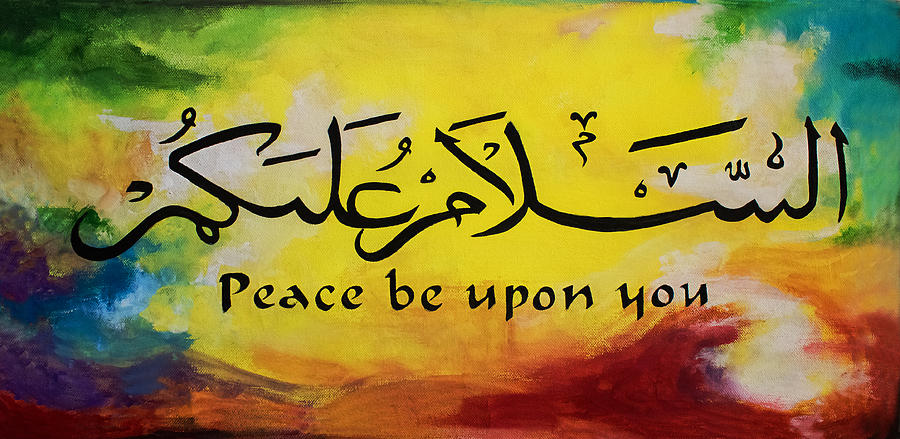 السَّلَامُ عَلَيْكُمُ
Peace be upon you